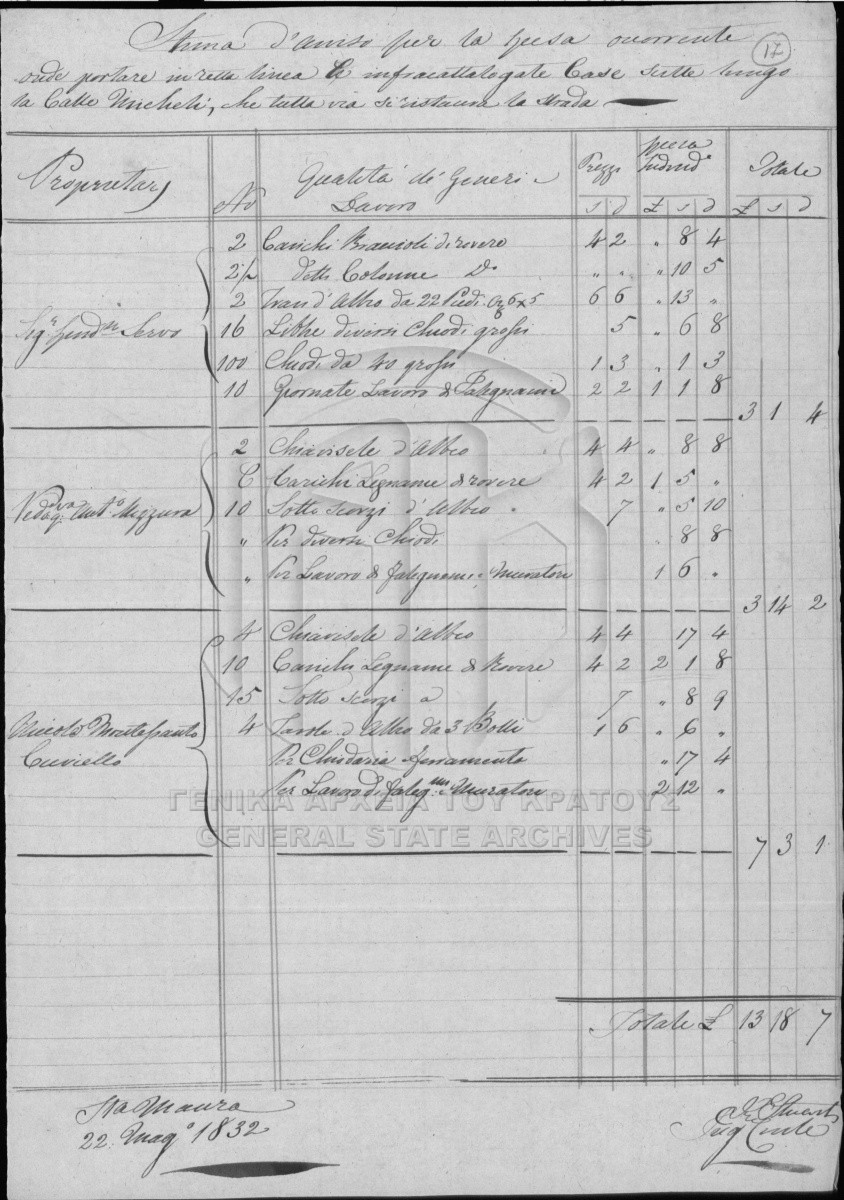 Stima d'aviso per la spesa ocorrente 17
onde portare in retta linea le infracattalogate Case sulle lungo
la Calle Micheli, che tutta via si ristaura la strada
Proprietarj No Qualità di Generi e Lavoro Prezzi Spesa Individ.e Totale
s d £ s d £ s d
2 Carichi Bracioli di rovere 4 2 " 8 4
2 1/2 detti Colonne Do " " " 10 5
2 Travi d'Albeo da 22 Piedi 6x5 6 6 " 13 "
Sigr Servo 16 Libbre diversi Chiodi grossi 5 " 6 8
100 Chiodi da 40 grossi 1 3 " 1 3
10 Giornate Lavoro di Falegnami 2 2 1 1 8
3 1 4
2 Chiavisele d'Albeo 4 4 " 8 8
6 Carichi Legname di rovere 4 2 1 5 "
Vedova q. Anto 10 Sotto scorzi d'Albeo " 7 " 5 10
" Per diversi Chiodi " 8 8
" Per Lavoro di Falegnami e Muratori 1 6 "
3 14 2
4 Chiavisele d'Albeo 4 4 17 4
10 Carichi Legname di Rovere 4 2 2 1 8
15 Sotto scorzi a 7 " 8 9
Nicolò Montesanto 4 Tavole d'Albeo da 3 Bolli 1 6 " 6 "
Cuviello Per Chiodaria e ferramenta " 17 4
Per Lavoro di Falegmi e Muratori 2 12 "
ΓΕΝΙΚΑ ΑΡΧΕΙΑ ΤΟΥ ΚΡΑΤΟΥΣ
GENERAL STATE ARCHIVES
7 3 1
Totale £ 13 18 7
Sta Maura
22 Mago 1832
Stuart